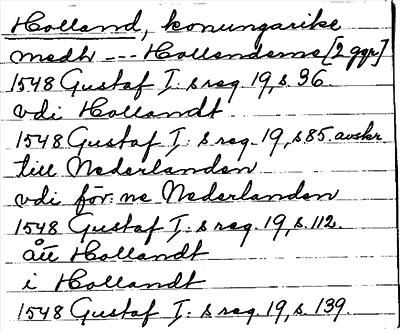 Holland, konungarike
medh --- Hollenderne [2 ggr]
1548 Gustaf I:s reg. 19, s. 36.
vdi Hollandt
1548 Gustaf I:s reg. 19, s 85. avskr.
till Nederlanden
vdi för:ne Nederlanden
1548 Gustaf I:s reg. 19, s. 112.
ått Hollandt
i Hollandt
1548 Gustaf I:s reg. 19, s. 139.